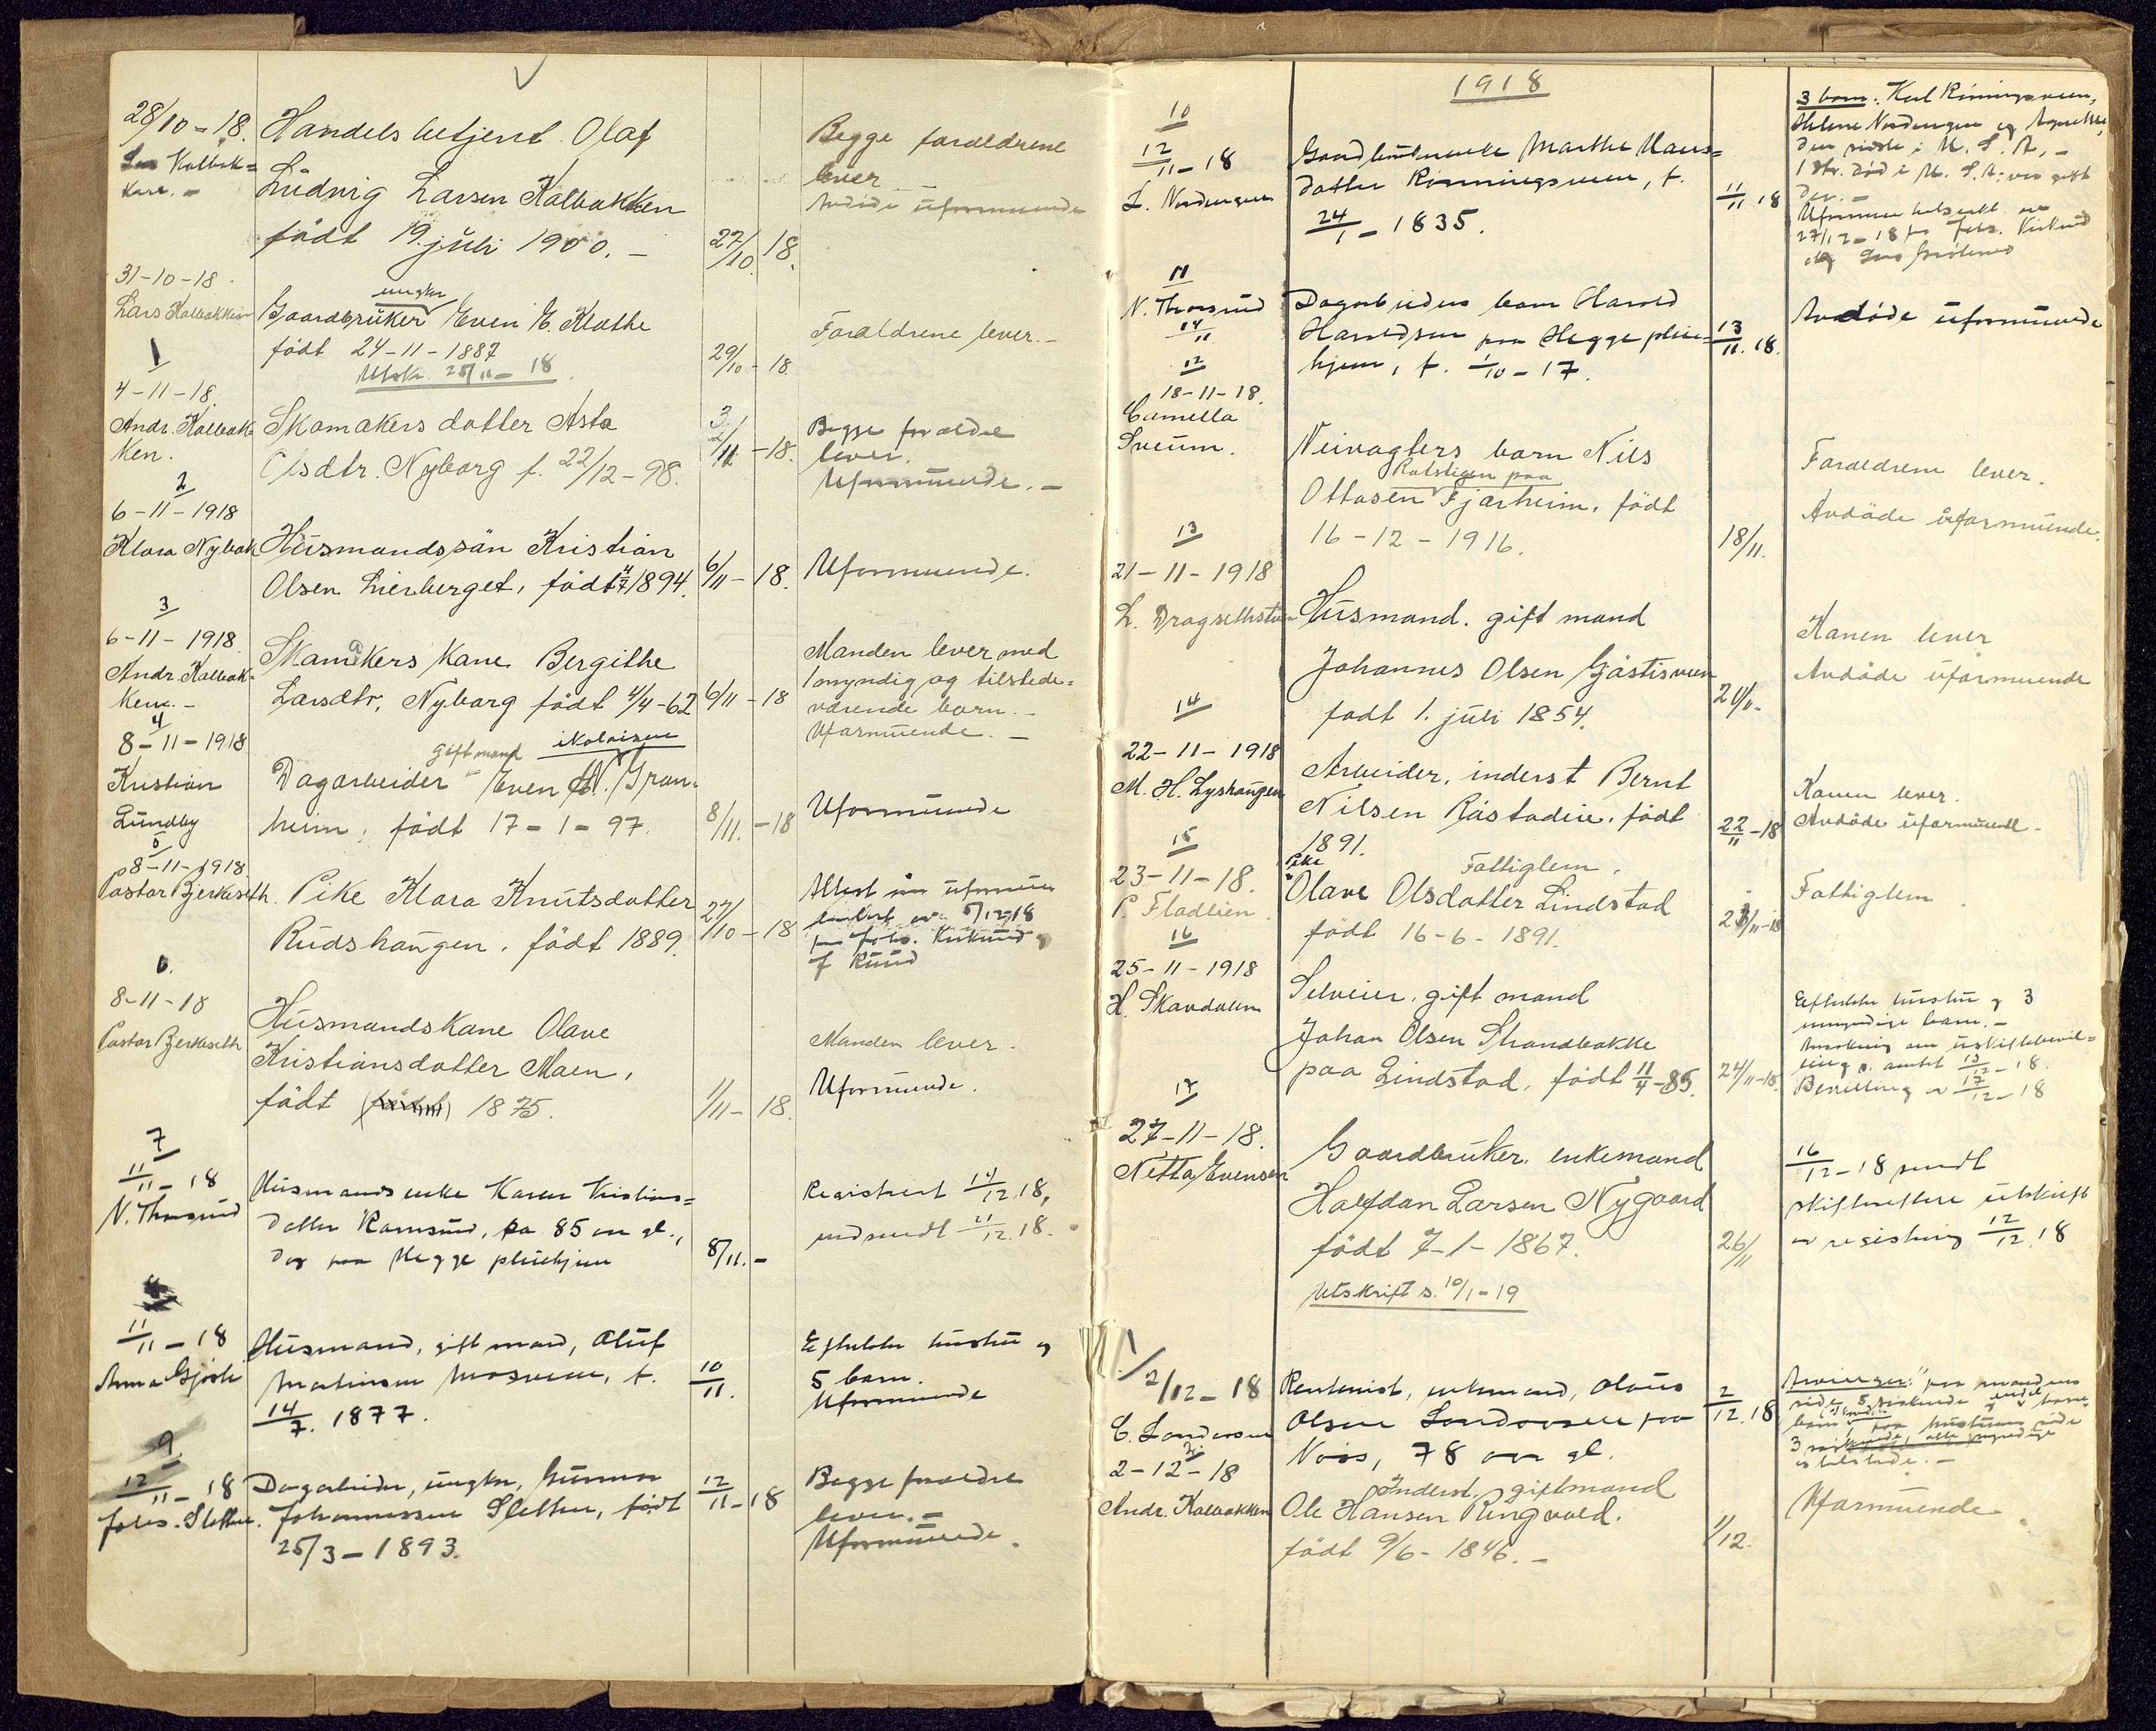 28/10-18.
Kolbak=
ken. -
Handelsbetjent Olaf
Ludvig Larsen Kolbakken
født 19. juli 1900. -
27/10 18.
Begge foraldrene
lever
Avdøde uformuende
31-10-18.
Lars Kolbakken
ungkr
Gaardbruker Even E. Klothe
født 24-11-1887
Utskr. 25/11-18.
29/10-18
Foraldrene lever. -
1
4-11-18.
Andr. Kolbak
ken.
Skomakers datter Asta
Olsdtr. Nyborg f. 22/12-98.
3/11-18.
Begge forældre
lever.
Uformuende. -
2
6-11-1918
Klara Nybak
Husmandssøn Kristian
Olsen Lierberget, født 4/7 1894.
6/11-18.
Uformuende.
3
6-11-1918
Andr. Kolbak-
ken. -
Skomakers kone Bergithe
Larsdtr. Nyborg født 4/4-62
6/11-18
Manden lever med
myndig og tilstede=
værende barn. -
Uformuende. -
4
8-11-1918
Kristian
Lundby
gift mand Nolaisen
Dagarbeider Even N. Gran-
heim, født 17-1-97.
8/11.-18
Uformuende
5
8-11-1918
Pastor Bjerkeseth.
Pike Klara Knutsdatter
Rudshaugen. født 1889.
27/10-18
Attest om uformuen
5/12-18
Kirkerud
Ruud
6.
8-11-18
Pastor Bjerkeseth
Husmandskone Olave
Kristiansdatter Moen,
født 1875.
1/11-18.
Manden lever.
Uformuende.
7
11/11-18
N. Thorsrud
Husmandsenke Karen Kristians=
datter Ramsrud, ca 85 aar gl.,
død paa Hegge pleiehjem
8/11.-
Registrert 14/12.18,
indsendt 21/12.18.
11/11-18
Anna Gjøsli
Husmand, gift mand, Oluf
Martinsen Mosveen, f.
14/7. 1877.
10/11.
Efterlater hustru og
5 barn.
Uformuende
9
12/11-18
Johs. Sletten.
Dagarbeider, ungkr, Gunnar
Johannessen Sletten, født
25/3-1893.
12/11-18
Begge forældre
lever. -
Uformuende.
1918
10
12/11-18
L. Nordengen
Gaardbrukerenke Marthe Hans=
datter Rønningsveen, f.
24/1-1835.
11/11 18
3 barn: Karl Rønningsveen,
Helene Nordengen og Agnethe,
den sidste i U. S. A., -
1 dtr. død i U. S. A; var gift
der. -
27/12-18 Johs. Kirkerud
og
11
N. Thorsrud
14/11
Dagarbeiders barn Harald
Haraldsen paa Hegge pleie-
hjem, f. 1/10-17.
13/11.18.
Avdøde uformuende
12
18-11-18.
Camella
Sveum.
Veivogters barn Nils
Rolstigen paa
Ottosen Fjærheim, født
16-12-1916.
18/11.
Foraldrene lever.
Avdøde uformuende.
13
21-11-1918
L. Dragsethstuen
Husmand. gift mand
Johannes Olsen Gjæstisveen
født 1. juli 1854.
21/11.
Konen lever
Avdøde uformuende
14
22-11-1918
M. H. Lyshaugen
Arbeider, inderst Bernt
Nilsen Råstadeie. født
1891.
22/11-18
Konen lever.
Avdøde uformuende.
15
23-11-18.
P. Fladlien
Pike Fattiglem.
Olave Olsdatter Lindstad
født 16-6-1891.
23/11-18
Fattiglem
16
25-11-1918
H. Skavdalen
Selveier. gift mand
Johan Olsen Strandbakke
paa Lindstad, født 11/4-85.
24/11-18.
Efterlater hustru og 3
umyndige barn. -
Ansøkning om uskiftebevil=
ling s. amtet 13/12-18.
Bevilling av 17/12-18
17
27-11-18.
Netta Evensen
Gaardbruker. enkemand
Halfdan Larsen Nygaard
født 7-1-1867.
Utskrift s. 10/1-19
26/11
16/12-18 sendt
skifteretten utskrift
av registrering 12/12.18
1/
2/12-18
C. Sandersen
Rentenist, enkemand, Olaus
Olsen Sandersen paa
Noss, 78 aar gl.
2/12.18
Arvinger: paa mandens
side 5 søskende
barn, paa hustruens side
3 søskende, alle myndige
og tilstede. -
2.
2-12-18
Andr. Kolbakken
Inderst, giftmand
Ole Hansen Ringvold.
født 9/6-1846. -
1/12.
Uformuende